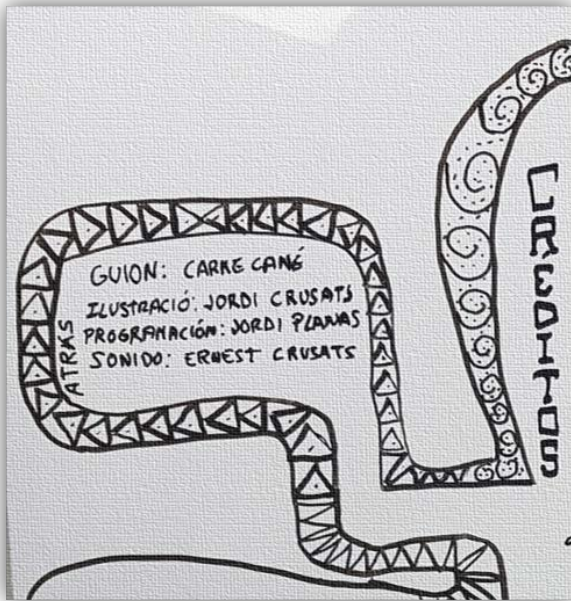 GUION: CARME CANÉ
ILUSTRACIÓ: JORDI CRUSATS
PROGRAMACIÓN: JORDI PLANAS
SONIDO: ERNEST CRUSATS
ATRÁS
CREDITOS